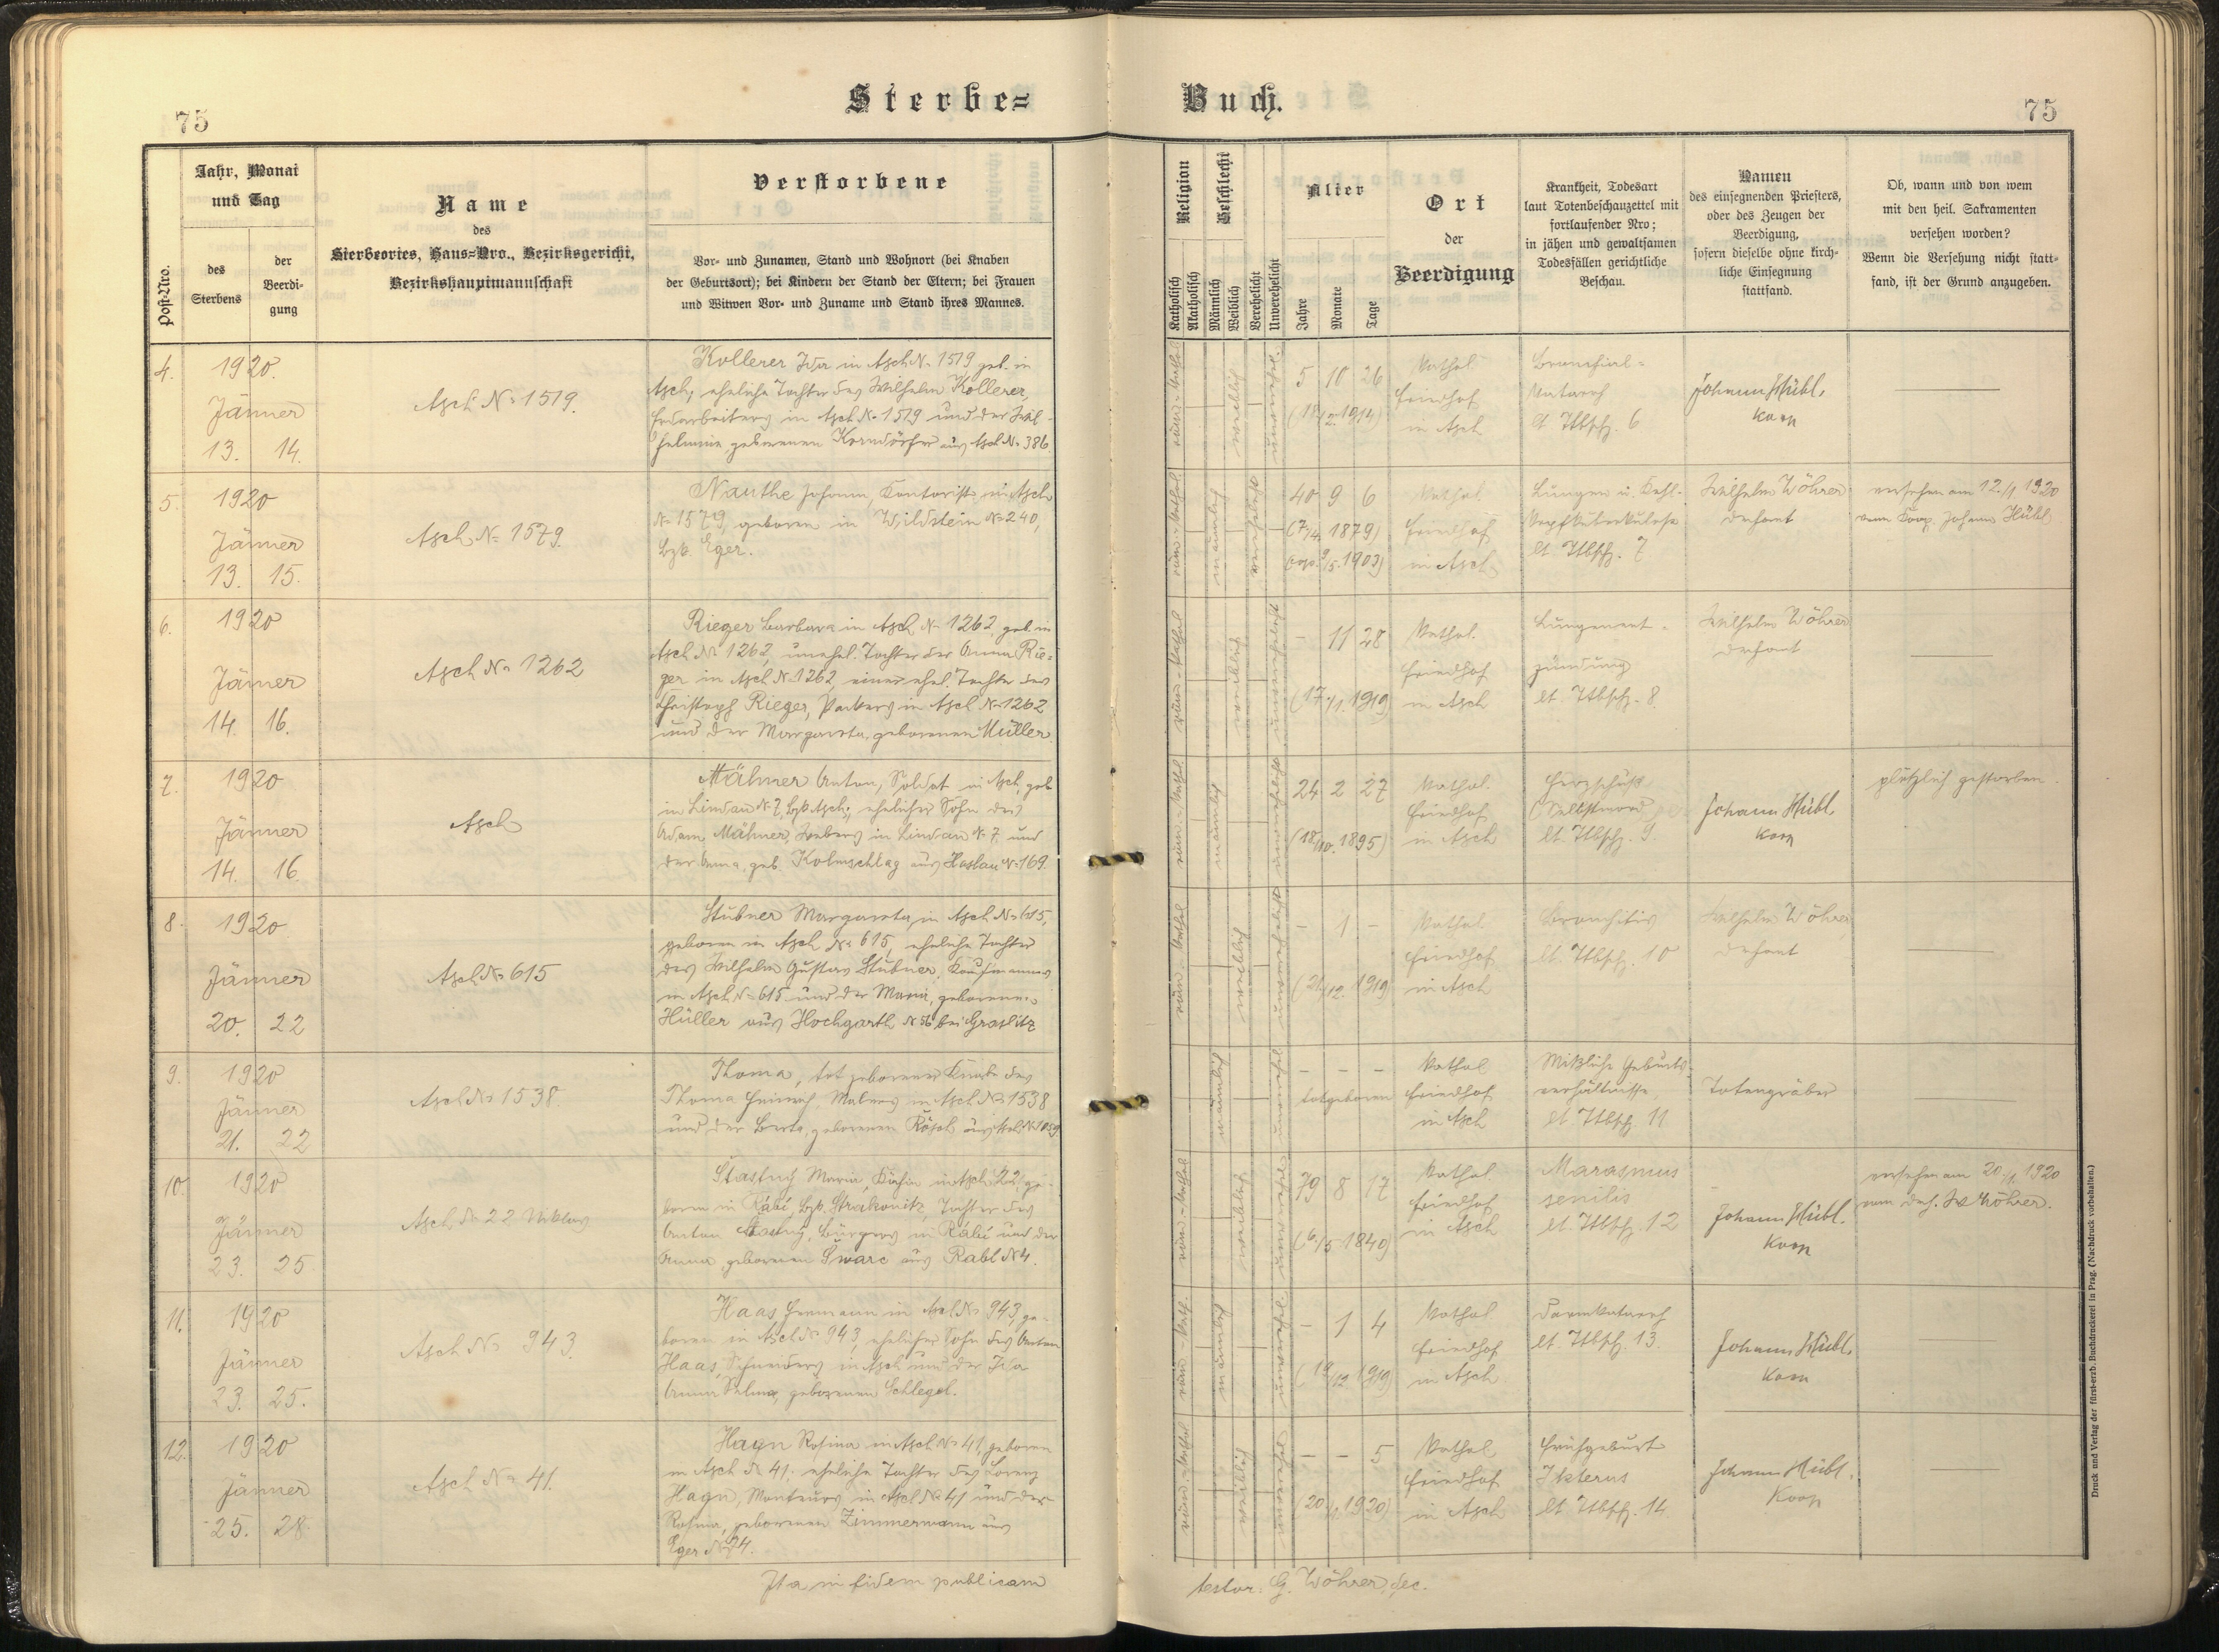 75
Sterbe=
Buch.
75
Post-Nro.
Jahr, Monat
und Tag
des
Sterbens
der
Beerdi-
gung
Name
des
Sterbeortes, Haus=Nro., Bezirksgericht,
Bezirkshauptmannschaft
Verstorbene
Vor- und Zunamen, Stand und Wohnort (bei Knaben
der Geburtsort); bei Kindern der Stand der Eltern; bei Frauen
und Witwen Vor- und Zuname und Stand ihres Mannes.
Religion
Katholisch
Akatholisch
Geschlecht
Männlich
Weiblich
Verehelicht
Unverehelicht
Alter
Jahre
Monate
Tage
Ort
der
Beerdigung
Krankheit, Todesart
laut Totenbeschauzettel mit
fortlaufender Nro;
in jähen und gewaltsamen
Todesfällen gerichtliche
Beschau.
Namen
des einsegnenden Priesters,
oder des Zeugen der
Beerdigung,
sofern dieselbe ohne kirch-
liche Einsegnung
stattfand.
Ob, wann und von wem
mit den heil. Sakramenten
versehen worden?
Wenn die Versehung nicht statt=
fand, ist der Grund anzugeben.
4.
1920.
Jänner
13. 14.
Asch N= 1519.
Kollerer Ida in Asch N= 1519 geb. in
Asch, eheliche Tochter des Wilhelm Kollerer,
Erdarbeiters in Asch N= 1519 und der Wil-
helmine, geborenen Korndörfer aus Asch N= 386.
röm.-kathol.
weiblich
unverehel.
5 10 26
(18/2. 1914)
Kathol.
Friedhof
in Asch
Bronchial=
Katarrh
lt Ttbschz. 6
Johann Hübl,
Koop
5.
1920
Jänner
13. 15.
Asch N= 1579.
Nauthe Johann, Kontorist in Asch
N= 1579, geboren in Wildstein N= 240,
Bzk. Eger.
röm.-kathol.
männlich
verehelicht
40 9 6
(7/4. 1879)
(cop. 9/5. 1903)
Kathol.
Friedhof
in Asch
Lungen u. Kehl-
kopftuberkulose
lt. Ttbschz. 7
Wilhelm Wöhrer
Dechant
versehen am 12./1. 1920
vom Koop. Johann Hübl
6.
1920
Jänner
14. 16.
Asch N= 1262
Rieger Barbara in Asch N= 1262, geb. in
Asch N= 1262, unehel. Tochter der Anna Rie=
ger in Asch N= 1262, einer ehel. Tochter des
Christoph Rieger, Packers in Asch N= 1262
und der Margareta, geborenen Müller
röm.-kathol
weiblich
unverehelicht
- 11 28
(17./1. 1919)
Kathol.
Friedhof
in Asch
Lungenent=
zündung
lt. Ttbschz. 8.
Wilhelm Wöhrer
Dechant
7.
1920
Jänner
14. 16.
Asch
Mähner Anton, Soldat in Asch, geb.
in Lindau N= 7, Bzk. Asch, ehelicher Sohn des
Adam Mähner, Webers in Lindau N= 7, und
der Anna, geb. Kolmschlag aus Haslau N= 169.
röm.-kathol.
männlich
unverehelicht
24 2 27
(18/10. 1895)
Kathol.
Friedhof
in Asch
Herzschuß
(Selbstmord)
lt. Ttbschz. 9.
Johann Hübl
Koop
plötzlich gestorben.
8.
1920
Jänner
20. 22
Asch N= 615
Stübner Margareta, in Asch N= 615,
geboren in Asch N= 615, eheliche Tochter
des Wilhelm Gustav Stübner, Kaufmannes
in Asch N= 615 und der Maria, geborenen
Hüller aus Hochgarth N 56 bei Graslitz
röm.-kathol
weiblich
unverehelicht
- 1 -
(21./12. 1919)
Kathol.
Friedhof
in Asch
Bronchitis
lt. Ttbschz. 10
Wilhelm Wöhrer
Dechant
9.
1920
Jänner
21. 22
Asch N= 1538.
Thoma, tot geborener Knabe des
Thoma Heinrich, Malers in Asch N= 1538
und der Berta, geborenen Rösch aus Asch N= 1059
männlich
unverehel
- - -
totgeboren
Kathol
Friedhof
in Asch
Mißliche Geburts-
verhältnisse,
lt. Ttbschz. 11
Totengräber
10.
1920
Jänner
23. 25
Asch N= 22 Niklas
Stastný Maria, Köchin in Asch 22, ge-
boren in Rábí, Bzk. Strakonitz, Tochter des
Anton Stastný, Bürgers in Rábí und der
Anna, geborenen Švarc aus Rabí N 4.
röm.-kathol
weiblich
unverehel
79 8 17
(6./5. 1840)
Kathol.
Friedhof
in Asch
Marasmus
senilis
lt. Ttbschz. 12
Johann Hübl.
Koop
versehen am 20./1. 1920
vom Dech. W. Wöhrer.
11.
1920
Jänner
23. 25.
Asch N= 943.
Haas Hermann in Asch N= 943, ge-
boren in Asch N= 943, ehelicher Sohn des Anton
Haas, Schneiders in Asch und der Ida
Anna Selma, geborenen Schlegel.
röm.-kath.
männlich
unverehel.
- 1 4
(19/12 1919)
Kathol
Friedhof
in Asch
Darmkatarrh
lt. Ttbschz. 13.
Johann Hübl.
Koop
12.
1920
Jänner
25. 28.
Asch N= 41.
Hagn Rosina in Asch N= 41, geboren
in Asch N= 41, eheliche Tochter des Lorenz
Hagn, Monteurs in Asch N= 41 und der
Rosina, geborenen Zimmermann aus
Eger N= 24.
röm.-kathol
weiblich
unverehel
- - 5
(20./1. 1920)
Kathol
Friedhof
in Asch
Frühgeburt
Ikterus
lt. Ttbschz. 14
Johann Hübl.
Koop
Ita in fidem publicam
testor: G. Wöhrer, dec.
Druck und Verlag der fürst-erzb. Buchdruckerei in Prag. (Nachdruck vorbehalten.)